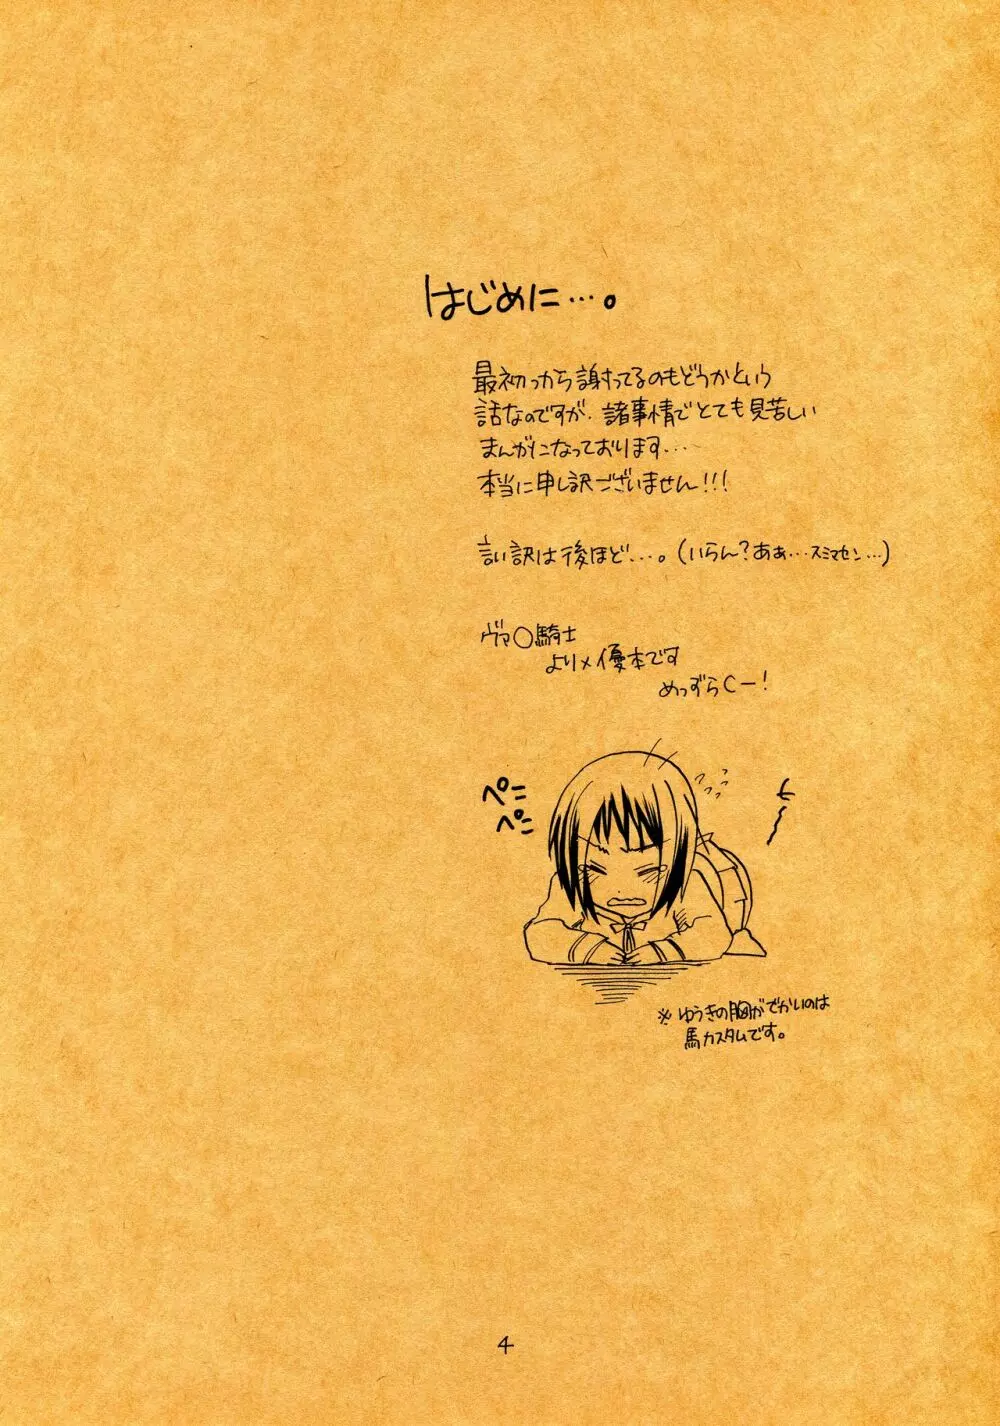 はじめに…。
最初っから謝ってるのもどうかという
話なのですが、諸事情でとても見苦しい
まんがになっております…。
本当に申し訳ございません!!!
言い訳は後ほど…。(いらん?ああ…スミマセン…)
ヴァ○騎士
より×優本です
めっずらCー!
ペこ
ペこ
※ゆうきの胸がでかいのは
馬カスタムです。
4